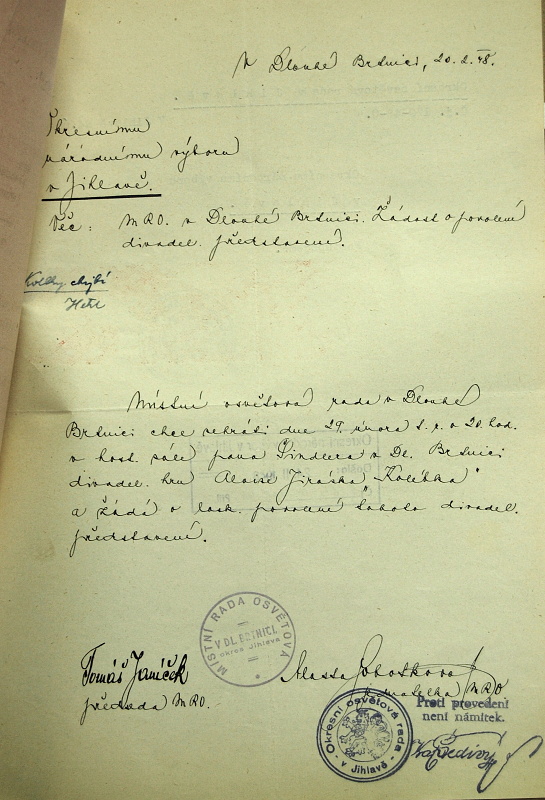 V Dlouhé Brtnici, 20.2.48.
Okresnímu
národnímu výboru
v Jihlavě.
Věc: MRO. v Dlouhé Brtnici. Žádost o povolení
divadel. představení.
Kolky chybí
Místní osvětová rada v Dlouhé
Brtnici chce sehráti dne 29. února t. r. o 20. hod.
v host. sále pana Šindlera v Dl. Brtnici
divadel. hru Aloise Jiráska „Kolébka"
a žádá o lask. povolení tohoto divadel.
představení.
MÍSTNÍ RADA OSVĚTOVÁ
V DL. BRTNICI
okres Jihlava
Tomáš Janíček
předseda MRO.
jednatelka MRO
Okresní osvětová rada
v Jihlavě
Proti provedení
není námitek.